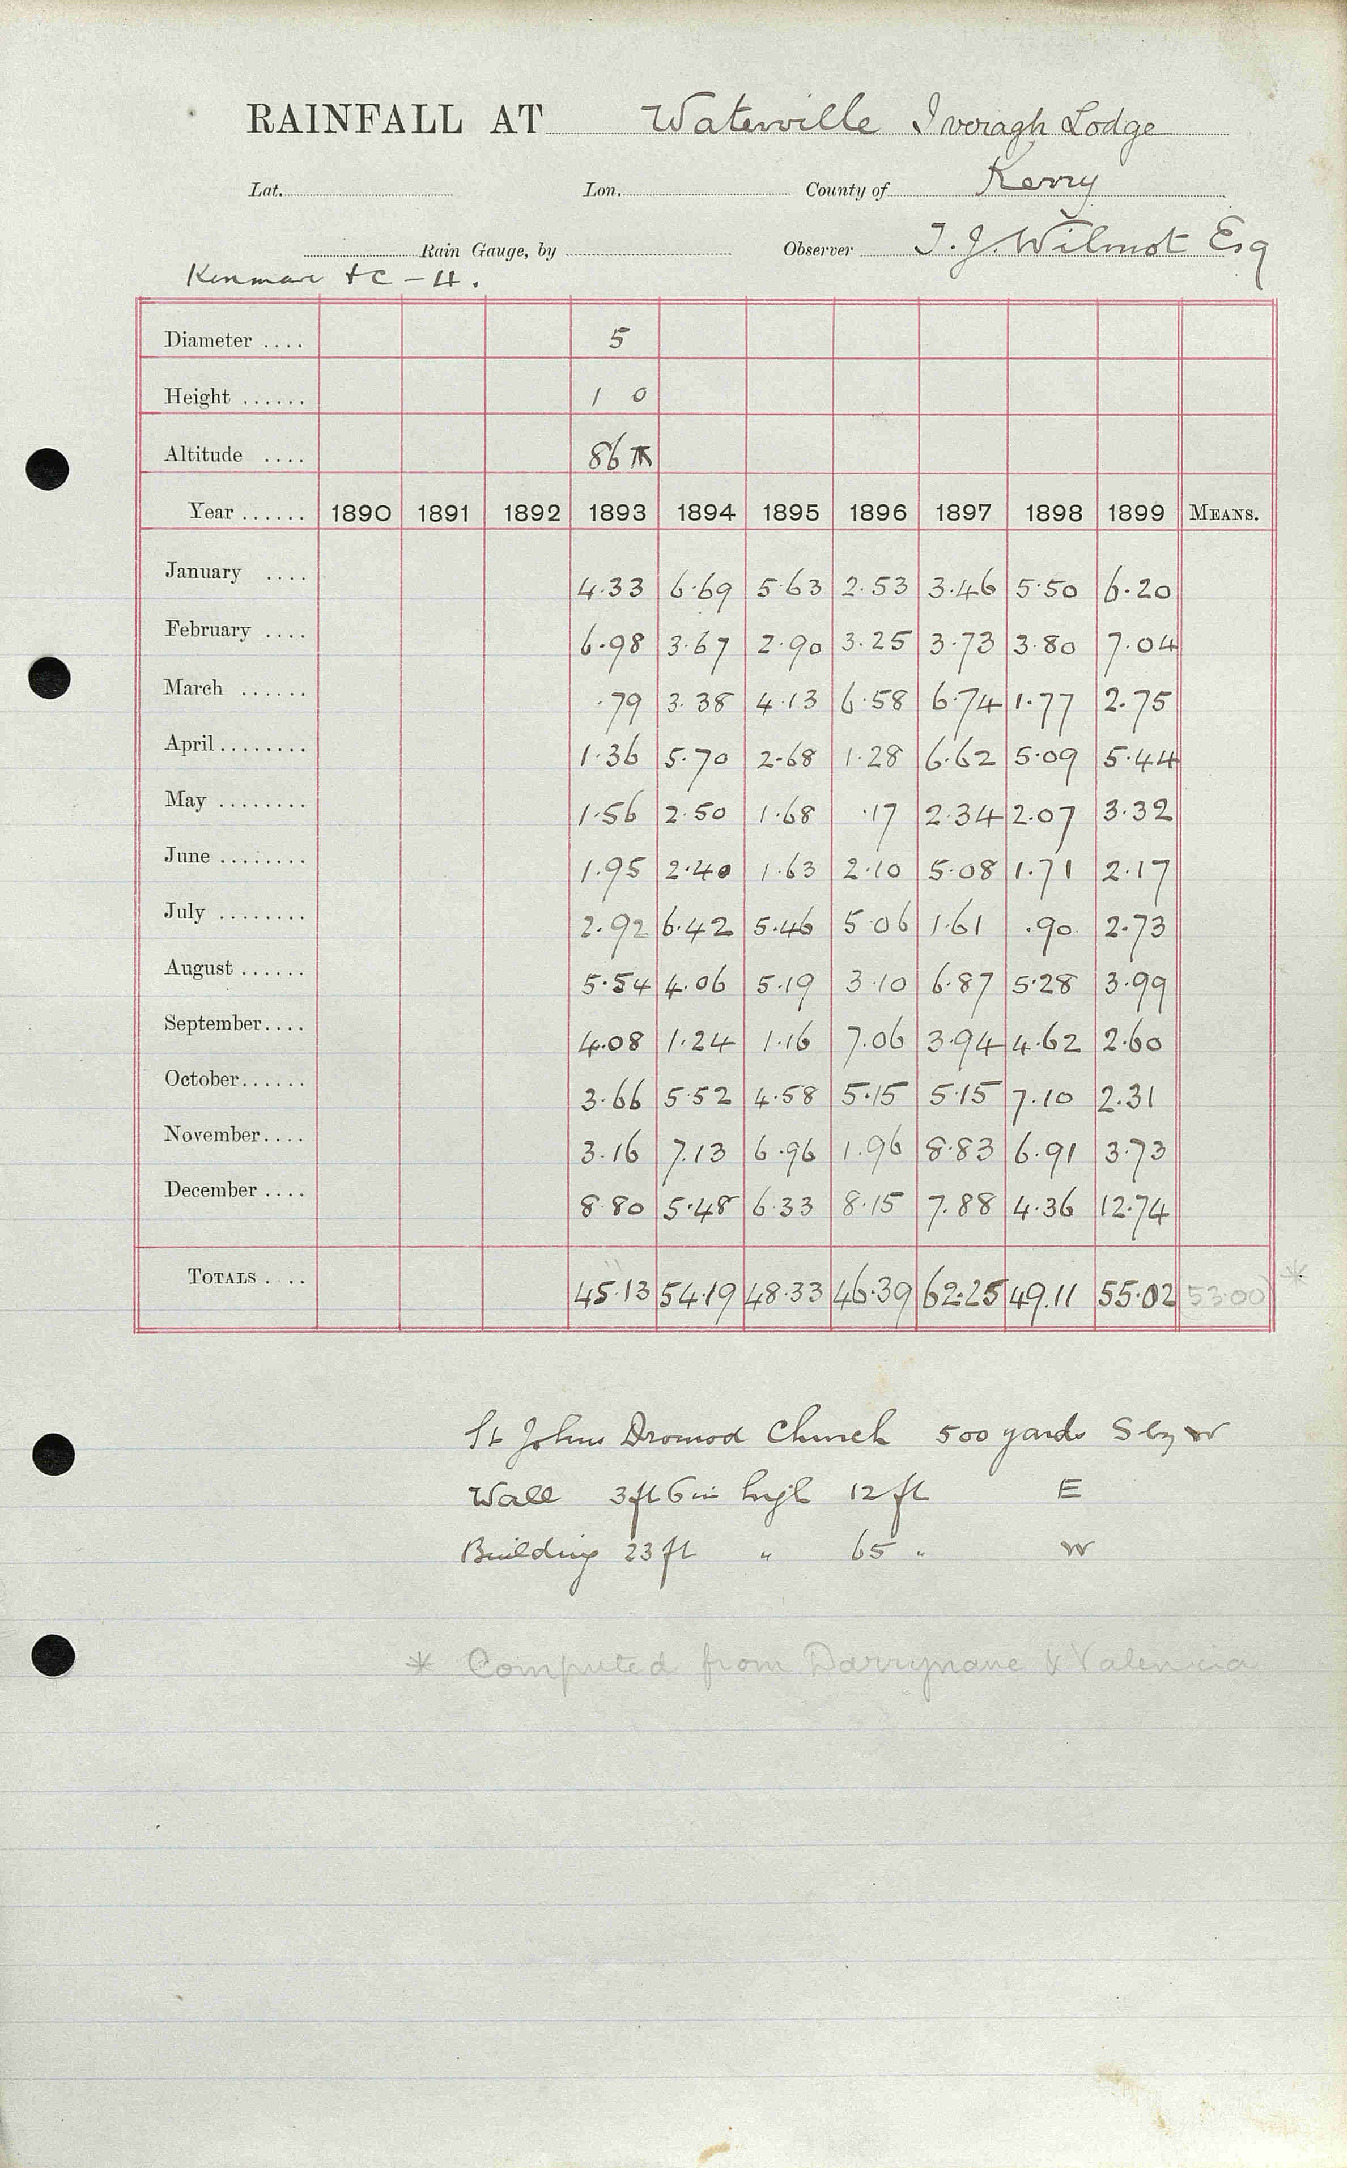 RAINFALL AT Waterville Iveragh Lodge
Lat. Lon. County of Kerry
Rain Gauge, by Observer T. J. Wilmot Esq
Kenmare + C - 4.
Diameter .... 5
Height ...... 1 0
Altitude .... 86
Year ...... 1890 1891 1892 1893 1894 1895 1896 1897 1898 1899 MEANS.
January .... 4.33 6.69 5.63 2.53 3.46 5.50 6.20
February .... 6.98 3.67 2.90 3.25 3.73 3.80 7.04
March ...... .79 3.38 4.13 6.58 6.74 1.77 2.75
April ........ 1.36 5.70 2.68 1.28 6.62 5.09 5.44
May ........ 1.56 2.50 1.68 .17 2.34 2.07 3.32
June ........ 1.95 2.40 1.63 2.10 5.08 1.71 2.17
July ........ 2.92 6.42 5.46 5.06 1.61 .90 2.73
August ...... 5.54 4.06 5.19 3.10 6.87 5.28 3.99
September.... 4.08 1.24 1.16 7.06 3.94 4.62 2.60
October...... 3.66 5.52 4.58 5.15 5.15 7.10 2.31
November.... 3.16 7.13 6.96 1.96 8.83 6.91 3.73
December .... 8.80 5.48 6.33 8.15 7.88 4.36 12.74
TOTALS .... 45.13 54.19 48.33 46.39 62.25 49.11 55.02 53.00 *
St Johns Dromod Church 500 yards S by W
Wall 3ft 6in high 12 ft E
Building 23 ft " 65 " W
* Computed from Darrynane & Valencia